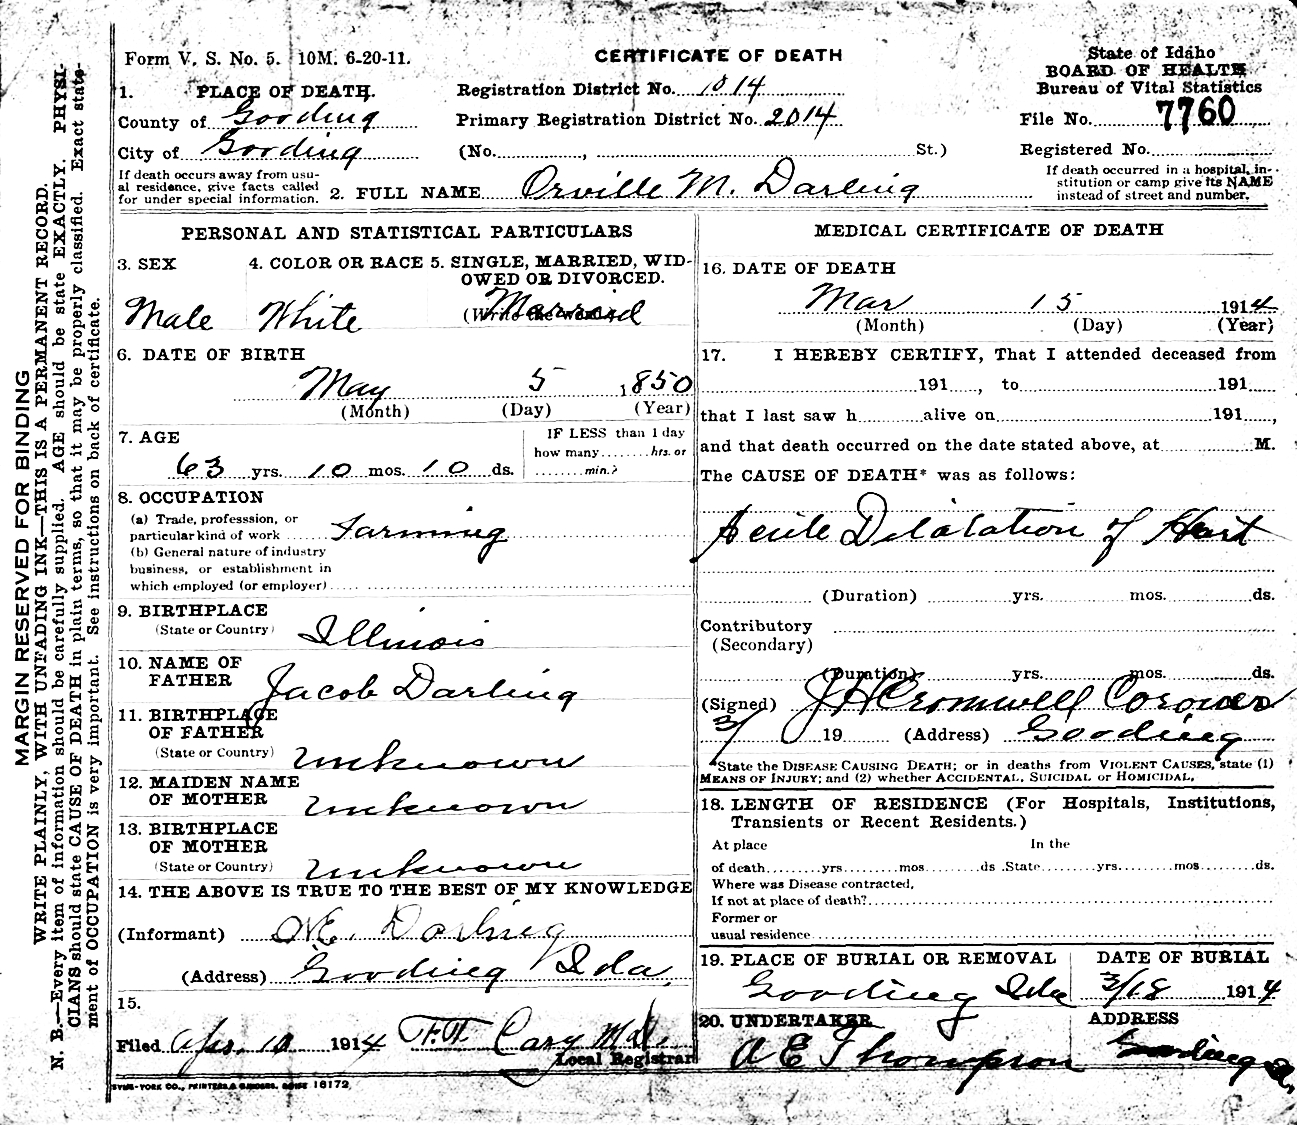 Form V. S. No. 5. 10M. 6-20-11.
CERTIFICATE OF DEATH
State of Idaho
BOARD OF HEALTH
Bureau of Vital Statistics
1. PLACE OF DEATH.
County of Gooding
City of Gooding
If death occurs away from usu-
al residence, give facts called
for under special information.
Registration District No. 1014
Primary Registration District No. 2014
(No. , St.)
File No. 7760
Registered No.
If death occurred in a hospital, in-
stitution or camp give its NAME
instead of street and number.
2. FULL NAME Orville M. Darling
PERSONAL AND STATISTICAL PARTICULARS
3. SEX
Male
4. COLOR OR RACE
White
5. SINGLE, MARRIED, WID-
OWED OR DIVORCED.
Married
6. DATE OF BIRTH
May 5 1850
(Month) (Day) (Year)
7. AGE
63 yrs. 10 mos. 10 ds.
IF LESS than 1 day
how many hrs. or
min.?
8. OCCUPATION
(a) Trade, professsion, or
particular kind of work Farming
(b) General nature of industry
business, or establishment in
which employed (or employer)
9. BIRTHPLACE
(State or Country) Illinois
10. NAME OF
FATHER Jacob Darling
11. BIRTHPLACE
OF FATHER
(State or Country) unknown
12. MAIDEN NAME
OF MOTHER unknown
13. BIRTHPLACE
OF MOTHER
(State or Country) unknown
14. THE ABOVE IS TRUE TO THE BEST OF MY KNOWLEDGE
(Informant) O.E. Darling
(Address) Gooding Ida,
15.
Filed Apr. 10 1914 Cary M.D.
Local Registrar
SYMS-YORK CO., PRINTERS & BINDERS, BOISE 16172
MEDICAL CERTIFICATE OF DEATH
16. DATE OF DEATH
Mar 15 1914
(Month) (Day) (Year)
17. I HEREBY CERTIFY, That I attended deceased from
191 , to 191
that I last saw h alive on 191 ,
and that death occurred on the date stated above, at M.
The CAUSE OF DEATH* was as follows:
Acute Dilatation of Heart
(Duration) yrs. mos. ds.
Contributory
(Secondary)
(Duration) yrs. mos. ds.
(Signed) J H Cromwell Coroner
3/ 19 (Address) Gooding
*State the DISEASE CAUSING DEATH; or in deaths from VIOLENT CAUSES, state (1)
MEANS OF INJURY; and (2) whether ACCIDENTAL, SUICIDAL or HOMICIDAL.
18. LENGTH OF RESIDENCE (For Hospitals, Institutions,
Transients or Recent Residents.)
At place In the
of death yrs mos ds. State yrs. mos. ds.
Where was Disease contracted,
If not at place of death?
Former or
usual residence
19. PLACE OF BURIAL OR REMOVAL
Gooding Ida
DATE OF BURIAL
3/18 1914
20. UNDERTAKER
A E Thompson
ADDRESS
Gooding
MARGIN RESERVED FOR BINDING
WRITE PLAINLY, WITH UNFADING INK—THIS IS A PERMANENT RECORD.
N. B.—Every item of information should be carefully supplied. AGE should be state EXACTLY. PHYSI-
CIANS should state CAUSE OF DEATH in plain terms, so that it may be properly classified. Exact state-
ment of OCCUPATION is very important. See instructions on back of certificate.